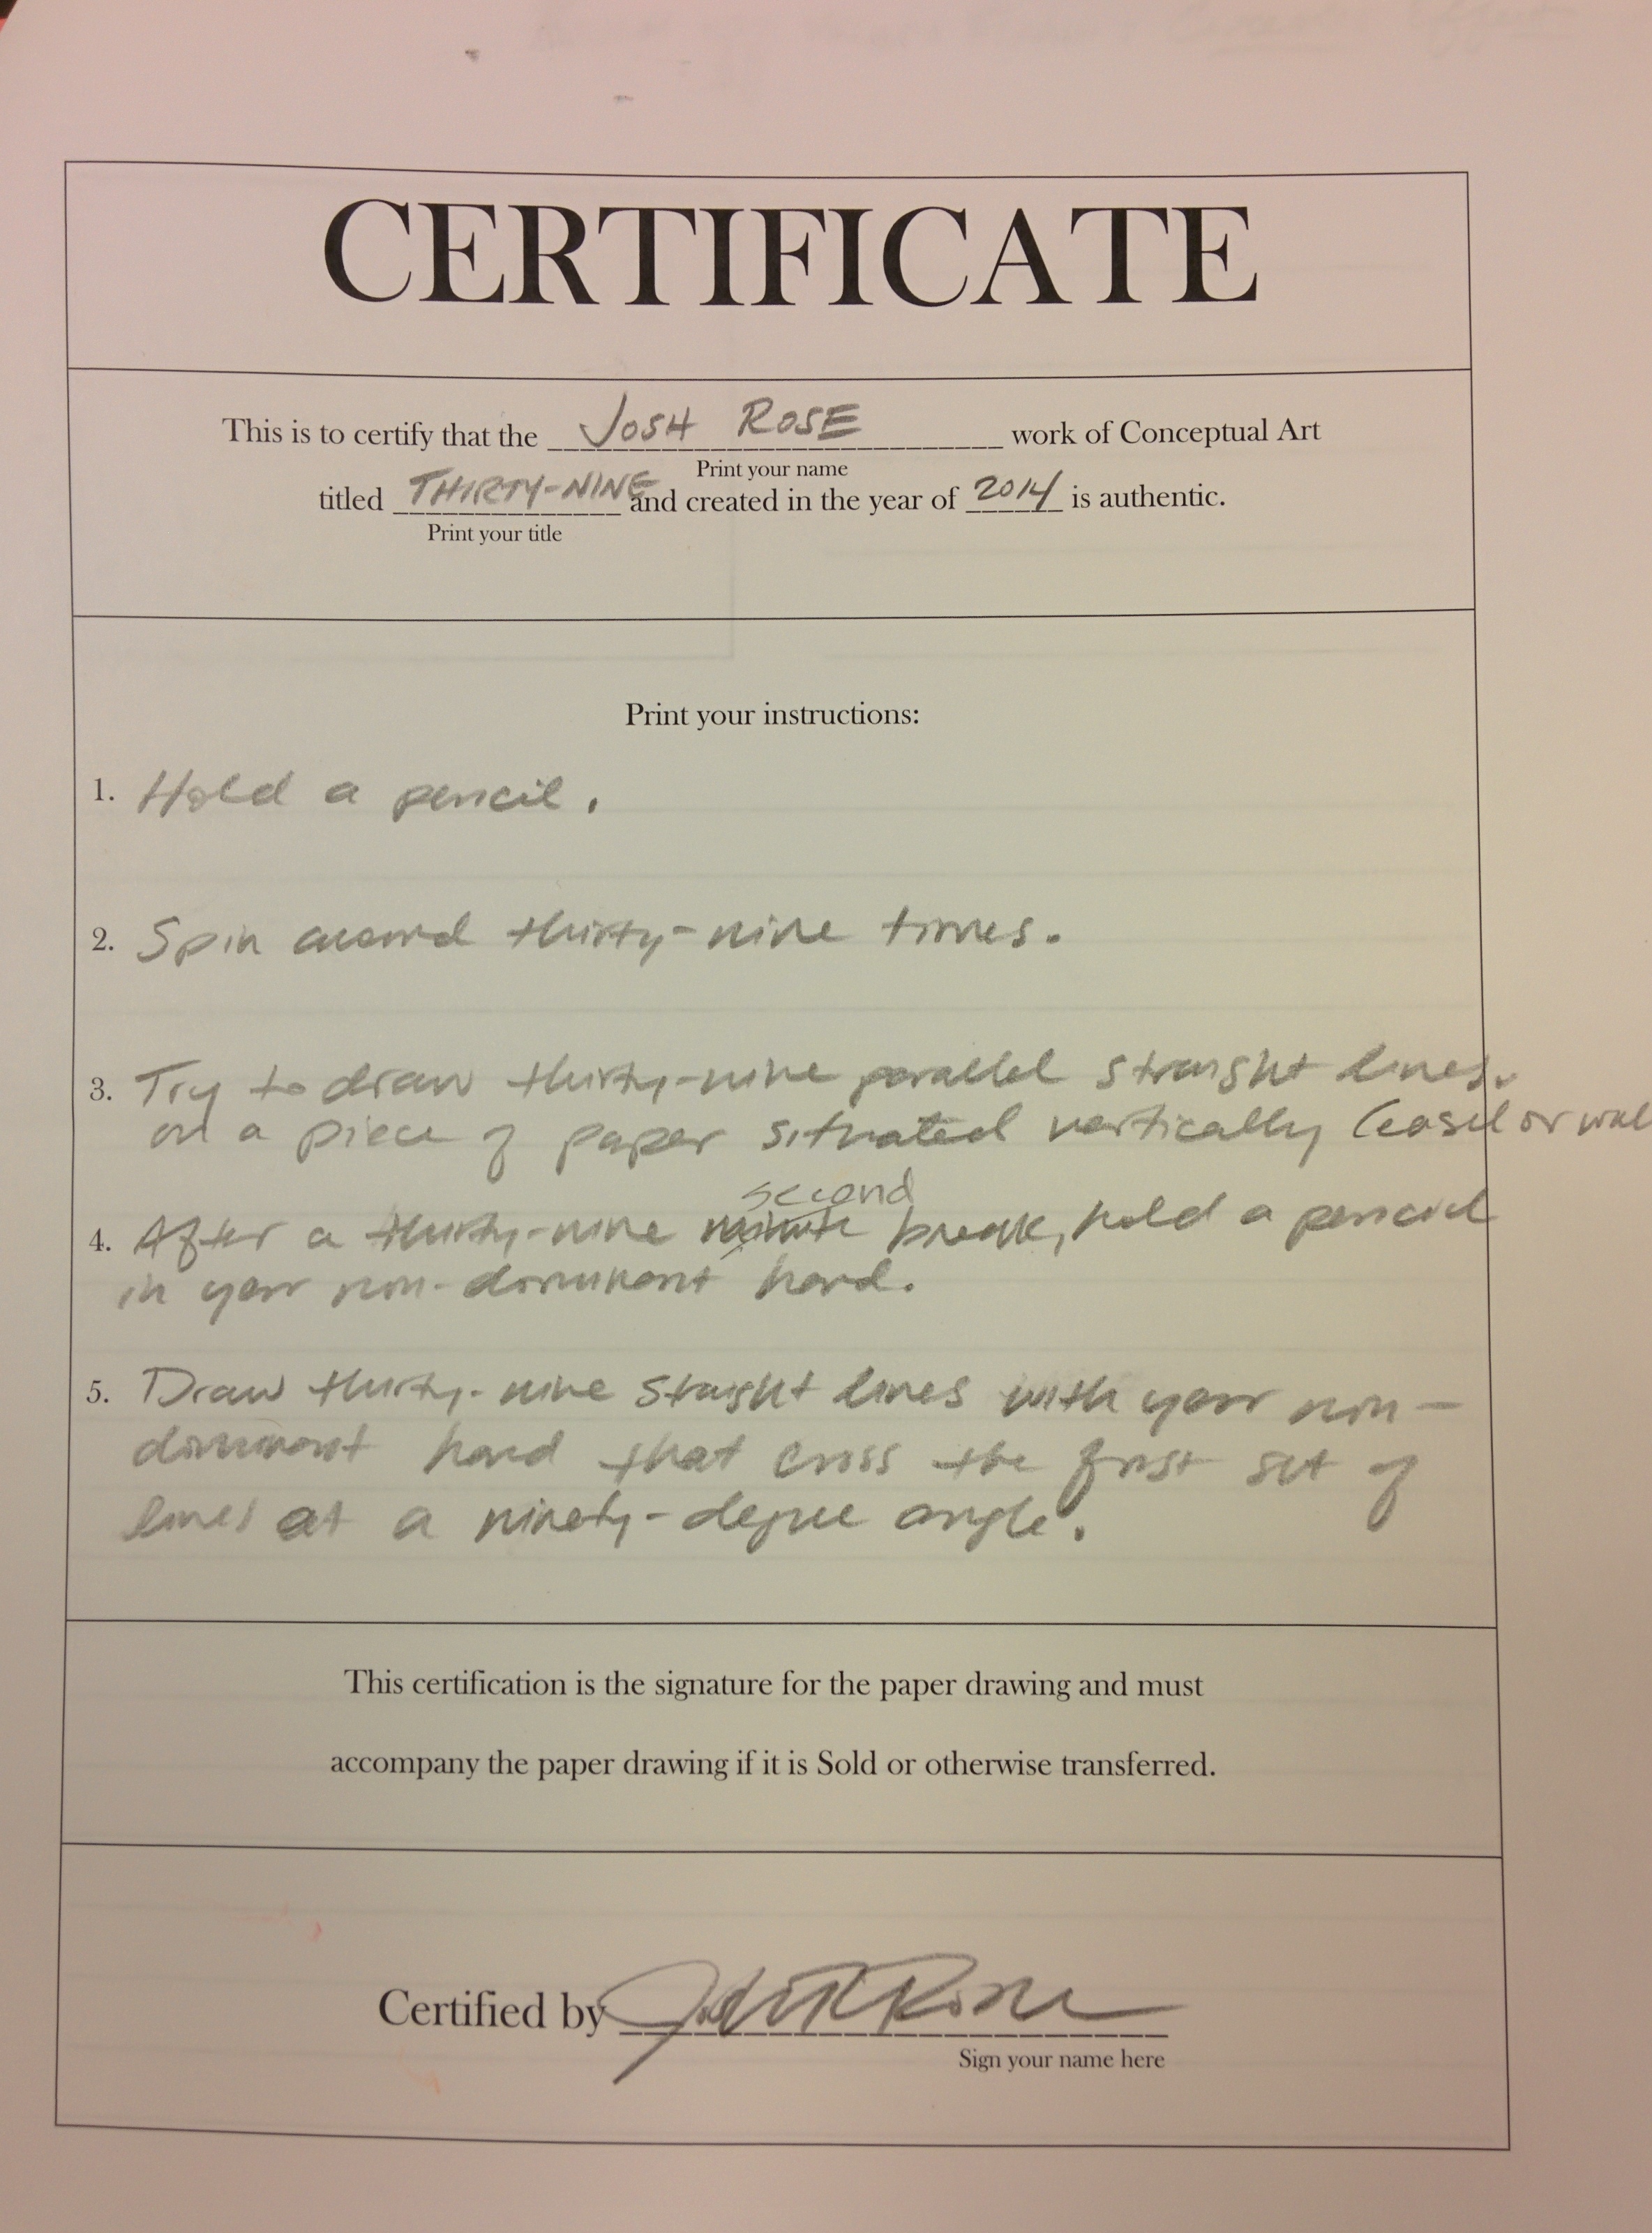 CERTIFICATE
This is to certify that the JOSH ROSE work of Conceptual Art
Print your name
titled THIRTY-NINE and created in the year of 2014 is authentic.
Print your title
Print your instructions:
1. Hold a pencil.
2. Spin around thirty-nine times.
3. Try to draw thirty-nine parallel straight lines.
on a piece of paper situated vertically (easel or wall
second
4. After a thirty-nine minute break, hold a pencil
in your non-dominant hand.
5. Draw thirty-nine staight lines with your non-
dominant hand that cross the first set of
lines at a ninety-degree angle.
This certification is the signature for the paper drawing and must
accompany the paper drawing if it is Sold or otherwise transferred.
Certified by
Sign your name here